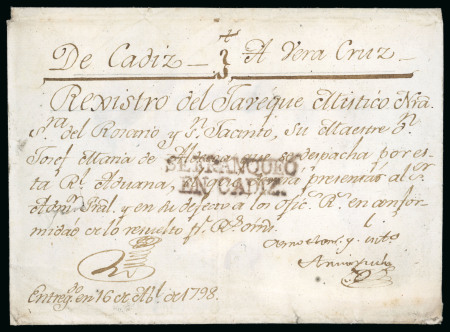 De Cadiz - A Vera Cruz -
Rexistro del Javeque Mistico Nra
Sra del Rosario y Sn Jacinto, Su Maestre Dn
Josef Maria de que se despacha por es-
ta Rl Aduana, presentar al
y en su defecto a los Ofic. Rs en confor-
midad de lo resuelto pr Rl orñ
SE FRANQUEÓ
EN CADIZ.
Entregdo en 16 de Abl de 1798.